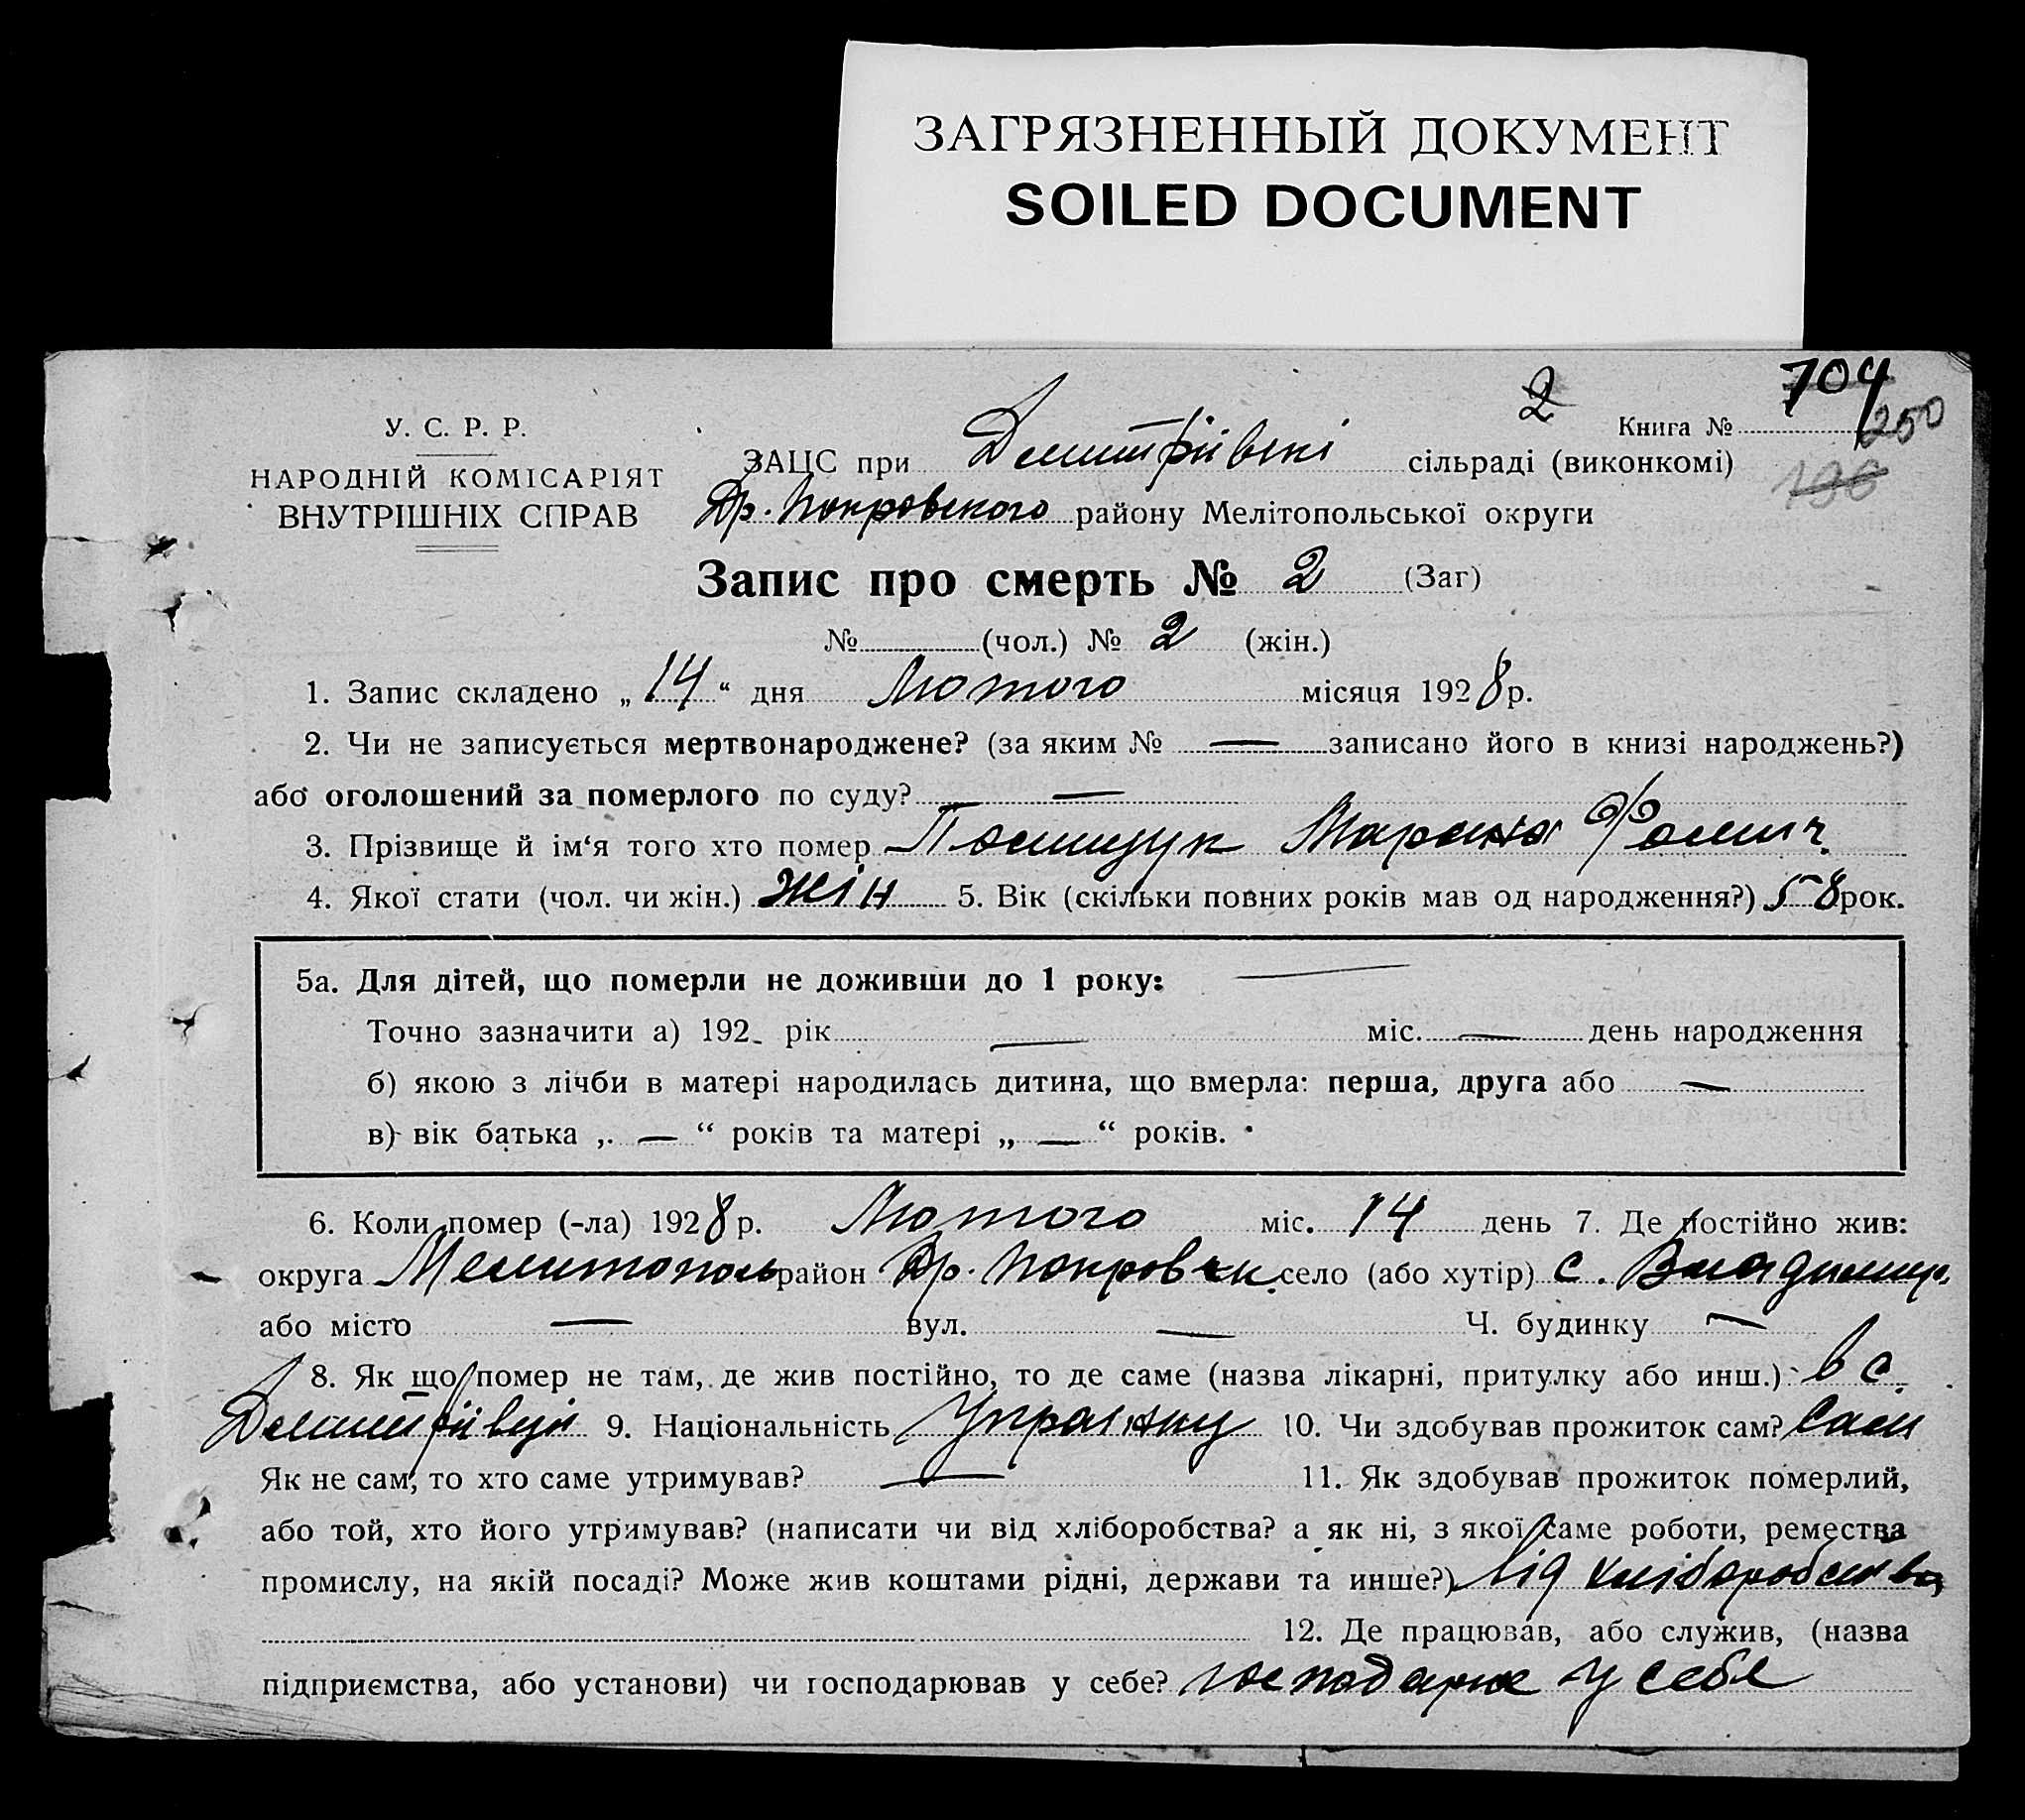 ЗАГРЯЗНЕННЫЙ ДОКУМЕНТ
SOILED DOCUMENT
2
704
У. С. Р. Р.
Книга №
250
НАРОДНІЙ КОМІСАРІЯТ
ВНУТРІШНІХ СПРАВ
ЗАЦС при Дмитріівскі сільраді (виконкомі)
196
Др. Покровского району Мелітопольської округи
Запис про смерть № 2 (Заг)
№ (чол.) № 2 (жін.)
1. Запис складено „ 14 “ дня Лютого місяця 1928 р.
2. Чи не записується мертвонароджене? (за яким № — записано його в книзі народжень?)
або оголошений за померлого по суду? —
3. Прізвище й ім‘я того хто помер
4. Якої стати (чол. чи жін.) жін 5. Вік (скільки повних років мав од народження?) 58 рок.
5а. Для дітей, що померли не доживши до 1 року: —
Точно зазначити а) 192_ рік — міс. — день народження
б) якою з лічби в матері народилась дитина, що вмерла: перша, друга або —
в) вік батька „ — “ років та матері „ — “ років.
6. Коли помер (-ла) 1928 р. Лютого міс. 14 день 7. Де постійно жив:
округа Мелитополь район Др. Покровск. село (або хутір) с. Владимир.
або місто — вул. — Ч. будинку —
8. Як що помер не там, де жив постійно, то де саме (назва лікарні, притулку або инш.) в с.
9. Національність 10. Чи здобував прожиток сам? Сам
Як не сам, то хто саме утримував? — 11. Як здобував прожиток померлий,
або той, хто його утримував? (написати чи від хліборобства? а як ні, з якої саме роботи, ремества
промислу, на якій посаді? Може жив коштами рідні, держави та инше?) від хліборобства
12. Де працював, або служив, (назва
підприємства, або установи) чи господарював у себе? у себе